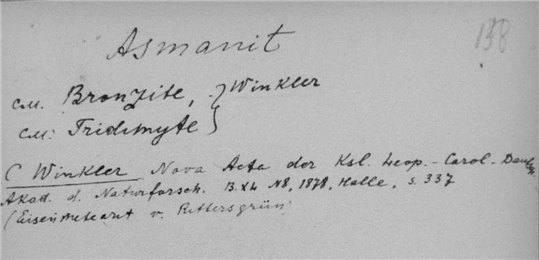 138
Asmanit
см. Bronzite, } Winkler
см: Tridimyte }
C Winkler Nova Acta der Ksl. Leop.-Carol-Deut
Akad. d. Naturforsch. B.XL N8, 1878, Halle, s. 337
(Eisenmeteorit v. Rittersgrün)